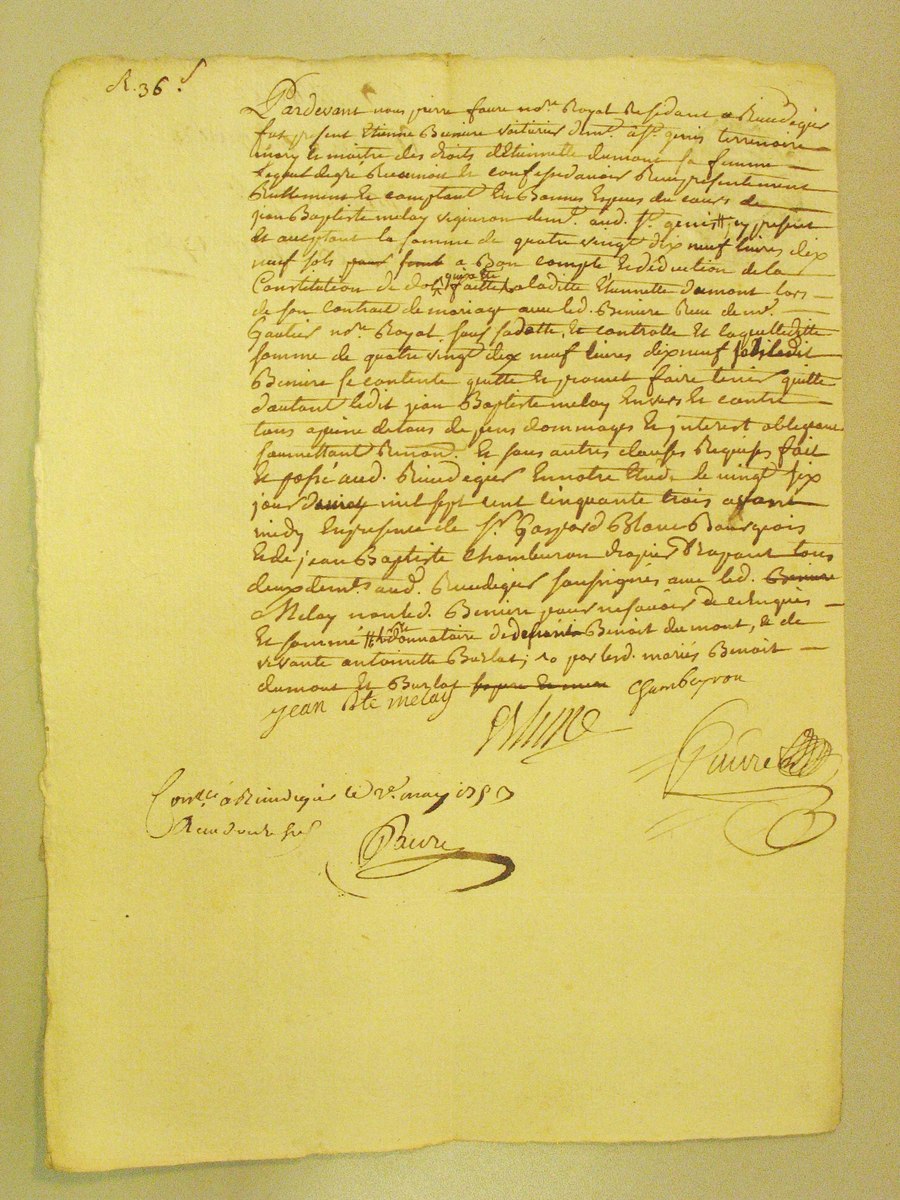 R. 36 s
Pardevant nous pierre faure no.re Royal Residant a Rivedegier
fut present Etienne Biniere voiturier dem.t a S.t genis terrenoire
mary et maitre des droits d'Etiennette dumont sa femme
Lequel degré Reconnoit et confesse davoir Reçu présentement
Reellement et comptant En Bonnes Especes du cours de
jean Baptiste melay vigneron dem.t aud. S.t genis # jcy present
et acceptant la somme de quatre vingt dix neuf livres dix
neuf sols a Bon compte Et déduction de la
Constitution de dot faitte a laditte Etiennette dumont lors
de son contrat de mariage avec led. Biniere Reçu de m.e
Gautier no.re Royal sous sa datte, Et controlle Et laquelleditte
somme de quatre vingt dix neuf livres dix neuf sols ledit
Biniere se contente quitte Et promet faire tenir quitte
d'autant ledit jean Baptiste melay Envers Et contre
tous a peine de tous depens dommages Et jnterest obligeant
soumettant Renon. Et sous autres clauses Requises fait
Et passé aud. Rivedegier En notre Etude le vingt six
jour mil sept cent cinquante trois avant
midy En presence de S.r Gaspard Blanc Bourgeois
Et de jean Baptiste Chambeyron drapier drapant tous
deux dem.ts aud. Rivedegier soussignés avec led. Biniere
Melay non led. Biniere pour ne savoir de ce Enquis
Et sommé # donnataire de Benoit dumont, & de
vivante antoinette Burlat; par lesd. mariés Benoit
dumont Et Burlat
jean Bte melay Chambeyron
Blanc
faure
Con.llé a Rivedegier le 2.e may 1753
Reçu douze sols
faure